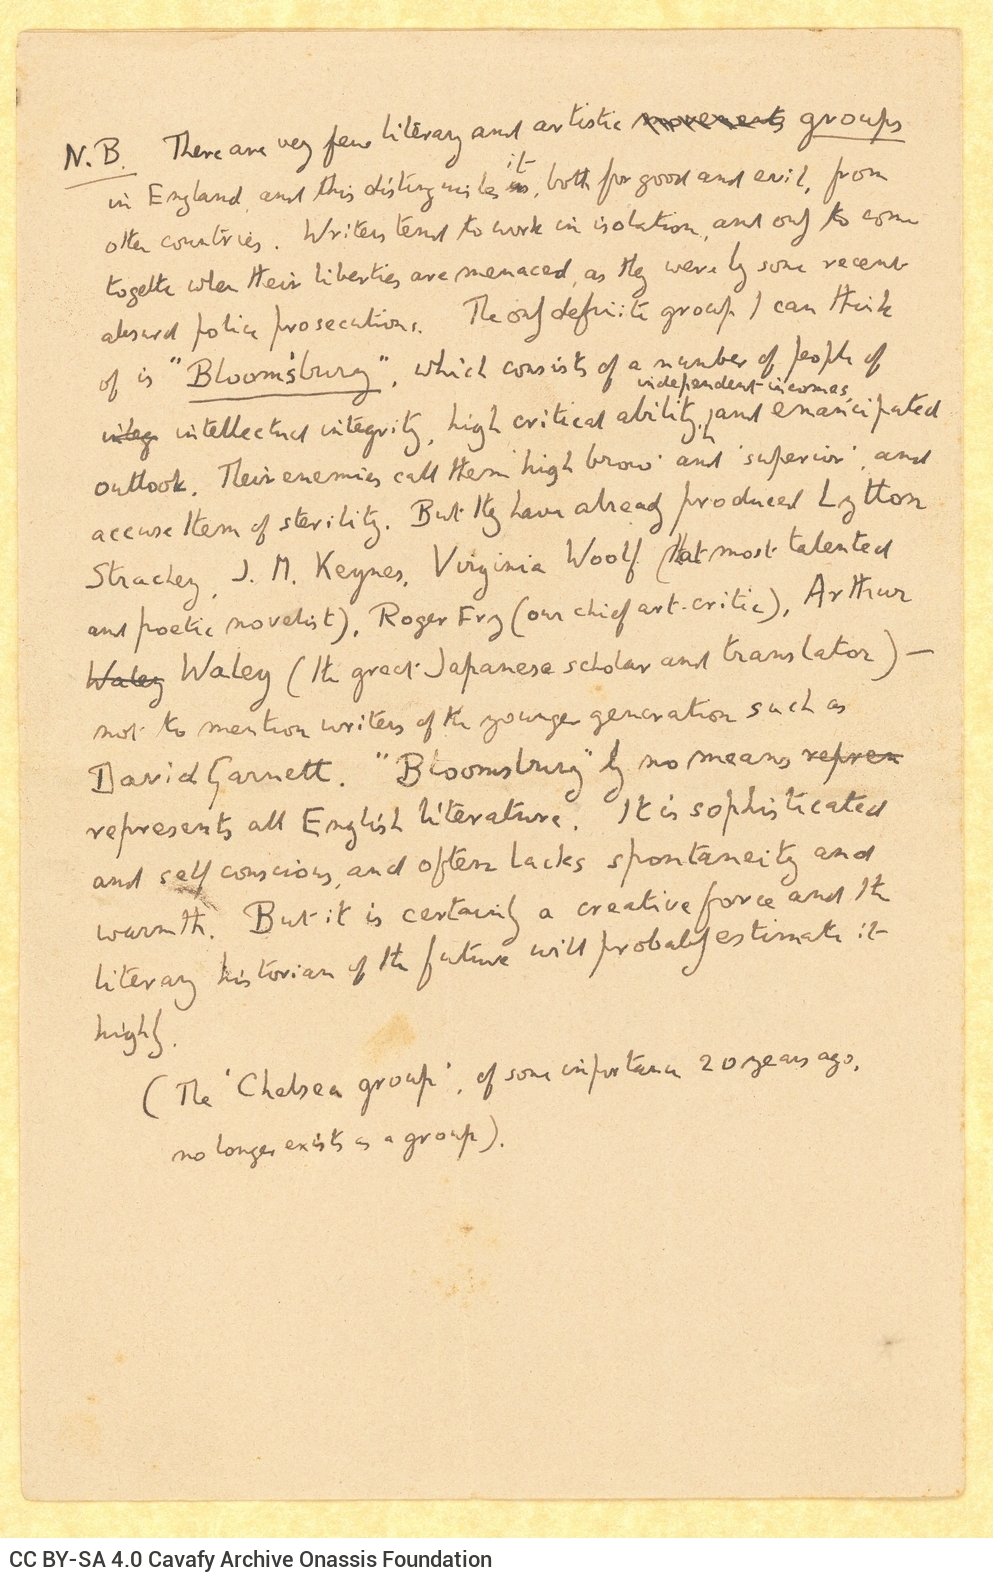 N.B. There are very few literary and artistic movements groups
in England, and this distinguishes us it, both for good and evil, from
other countries. Writers tend to work in isolation, and only to come
together when their liberties are menaced, as they were by some recent
absurd police prosecutions. The only definite group I can think
of is "Bloomsbury", which consists of a number of people of
independent incomes,
integ intellectual integrity, high critical ability, and emancipated
outlook. Their enemies call them 'high brow' and 'superior', and
accuse them of sterility. But they have already produced Lytton
Strachey, J. M. Keynes, Virginia Woolf (that most talented
and poetic novelist), Roger Fry (our chief art-critic), Arthur
Waley Waley (the great Japanese scholar and translator) —
not to mention writers of the younger generation such as
David Garnett. "Bloomsbury" by no means repren
represents all English literature. It is sophisticated
and self conscious, and often lacks spontaneity and
warmth. But it is certainly a creative force and the
literary historian of the future will probably estimate it
highly.
(The 'Chelsea group', of some importance 20 years ago,
no longer exists as a group).
CC BY-SA 4.0 Cavafy Archive Onassis Foundation